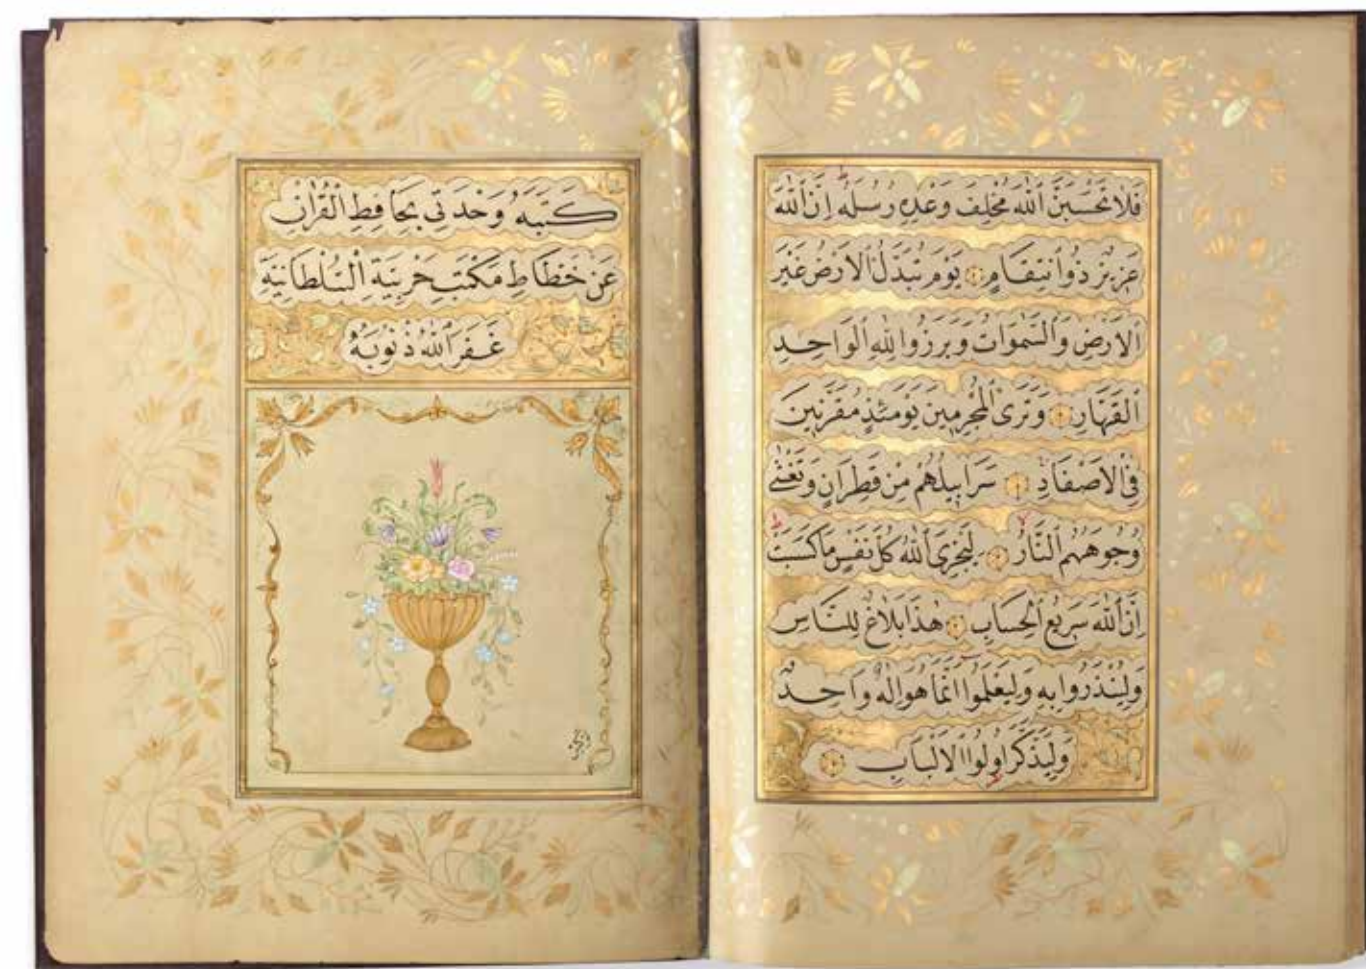 فَلَا تَحْسَبَنَّ اللّٰهَ مُخْلِفَ وَعْدِهِ رُسُلَهُ اِنَّ اللّٰهَ
عَزِيزٌ ذُو انْتِقَامٍ يَوْمَ تُبَدَّلُ الْاَرْضُ غَيْرَ
الْاَرْضِ وَالسَّمٰوَاتُ وَبَرَزُوا لِلّٰهِ الْوَاحِدِ
الْقَهَّارِ وَتَرَى الْمُجْرِمِينَ يَوْمَئِذٍ مُقَرَّنِينَ
فِي الْاَصْفَادِ سَرَابِيلُهُمْ مِنْ قَطِرَانٍ وَتَغْشٰى
وُجُوهَهُمُ النَّارُ لِيَجْزِيَ اللّٰهُ كُلَّ نَفْسٍ مَا كَسَبَتْ
اِنَّ اللّٰهَ سَرِيعُ الْحِسَابِ هٰذَا بَلَاغٌ لِلنَّاسِ
وَلِيُنْذَرُوا بِهِ وَلِيَعْلَمُوا اَنَّمَا هُوَ اِلٰهٌ وَاحِدٌ
وَلِيَذَّكَّرَ اُولُوا الْاَلْبَابِ
كَتَبَهُ وَحْدَتِي بِحَافِظِ الْقُرْاٰنِ
عَنْ خَطَّاطِ مَكْتَبِ حَرْبِيَّةِ السُّلْطَانِيَّةِ
غَفَرَ اللّٰهُ ذُنُوبَهُ